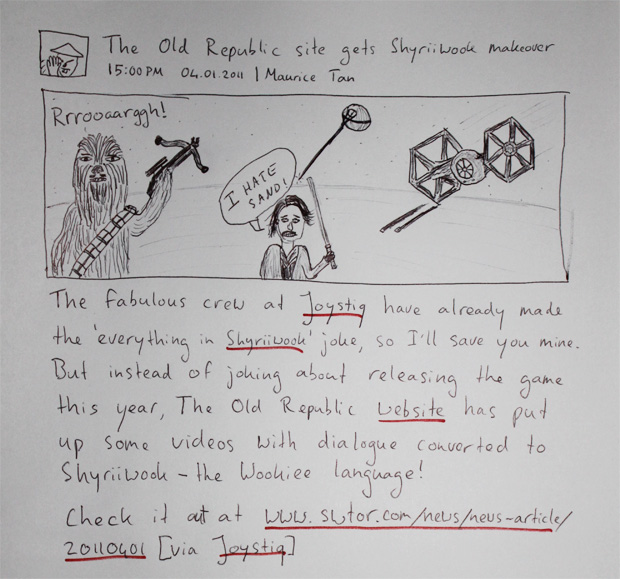 The Old Republic site gets Shyriiwook makeover
15:00 PM 04.01.2011 | Maurice Tan
Rrrooaarggh!
I HATE
SAND!
The fabulous crew at Joystiq have already made
the 'everything in Shyriiwook' joke, so I'll save you mine.
But instead of joking about releasing the game
this year, The Old Republic website has put
up some videos with dialogue converted to
Shyriiwook – the Wookiee language!
Check it out at www.swtor.com/news/news-article/
20110401 [via Joystiq]